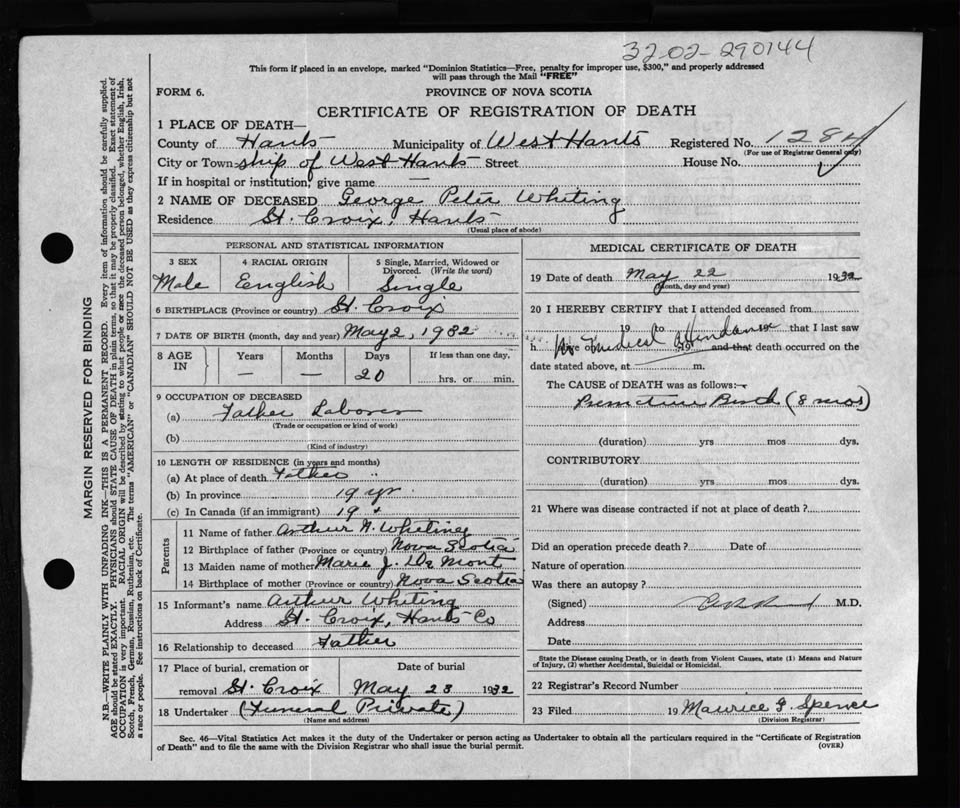 32-02-290144
This form if placed in an envelope, marked "Dominion Statistics—Free, penalty for improper use, $300," and properly addressed
will pass through the Mail "FREE"
FORM 6.
PROVINCE OF NOVA SCOTIA
CERTIFICATE OF REGISTRATION OF DEATH
1 PLACE OF DEATH—
County of Hants Municipality of West Hants Registered No. 1284
(For use of Registrar General only)
City or Town-ship of West Hants Street House No.
If in hospital or institution, give name —
2 NAME OF DECEASED George Peter Whiting
Residence St. Croix, Hants
(Usual place of abode)
PERSONAL AND STATISTICAL INFORMATION
3 SEX 4 RACIAL ORIGIN 5 Single, Married, Widowed or Divorced. (Write the word)
Male English Single
6 BIRTHPLACE (Province or country) St. Croix
7 DATE OF BIRTH (month, day and year) May 2, 1932
8 AGE IN Years Months Days If less than one day,
— — 20 hrs. or min.
9 OCCUPATION OF DECEASED
(a) Father Laborer
(Trade or occupation or kind of work)
(b)
(Kind of industry)
10 LENGTH OF RESIDENCE (in years and months)
(a) At place of death Father
(b) In province 19 yr
(c) In Canada (if an immigrant) 19
Parents
11 Name of father Arthur A. Whiting
12 Birthplace of father (Province or country) Nova Scotia
13 Maiden name of mother Marie J. De Mont
14 Birthplace of mother (Province or country) Nova Scotia
15 Informant's name Arthur Whiting
Address St. Croix, Hants Co
16 Relationship to deceased Father
17 Place of burial, cremation or Date of burial
removal St. Croix May 23 1932
18 Undertaker (Funeral Private)
(Name and address)
MEDICAL CERTIFICATE OF DEATH
19 Date of death May 22 1932
(Month, day and year)
20 I HEREBY CERTIFY that I attended deceased from
No medical attendance
19 to that I last saw
h ive on 19 and that death occurred on the
date stated above, at — m.
The CAUSE of DEATH was as follows:—
Premature Birth (8 mos)
(duration) yrs mos dys.
CONTRIBUTORY
(duration) yrs mos dys.
21 Where was disease contracted if not at place of death?
Did an operation precede death? Date of
Nature of operation
Was there an autopsy?
(Signed) M.D.
Address
Date
State the Disease causing Death, or in death from Violent Causes, state (1) Means and Nature
of Injury, (2) whether Accidental, Suicidal or Homicidal.
22 Registrar's Record Number
23 Filed 19 Maurice G. Spence
(Division Registrar)
Sec. 46—Vital Statistics Act makes it the duty of the Undertaker or person acting as Undertaker to obtain all the particulars required in the "Certificate of Registration
of Death" and to file the same with the Division Registrar who shall issue the burial permit. (OVER)
MARGIN RESERVED FOR BINDING
N.B.—WRITE PLAINLY WITH UNFADING INK—THIS IS A PERMANENT RECORD. Every item of information should be carefully supplied.
AGE should be stated EXACTLY. PHYSICIANS should STATE CAUSE OF DEATH in plain terms, so that it may be properly classified. Exact statement of
OCCUPATION is very important. RACIAL ORIGIN will be described by stating to what people or race the deceased person belonged, whether English, Irish,
Scotch, French, German, Russian, Ruthenian, etc. The terms "AMERICAN" or "CANADIAN" SHOULD NOT BE USED as they express citizenship but not
a race or people. See instructions on back of Certificate.